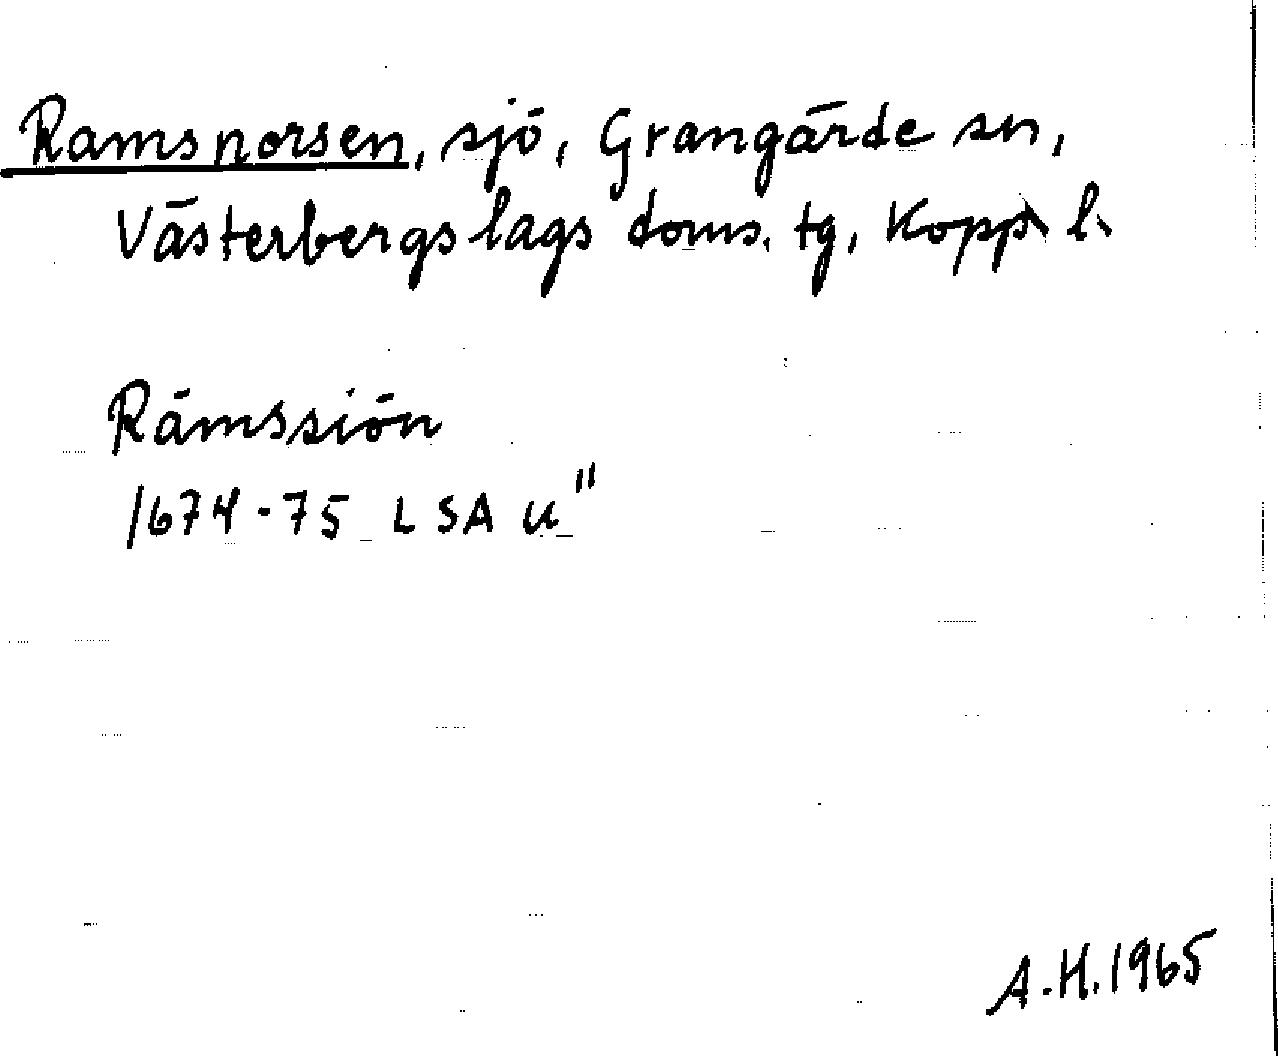 Ramsnorsen, sjö, Grangärde sn,
Västerbergslags doms. tg, Kopp. l.
Rämssiön
1674-75 LSA U"
A.H. 1965